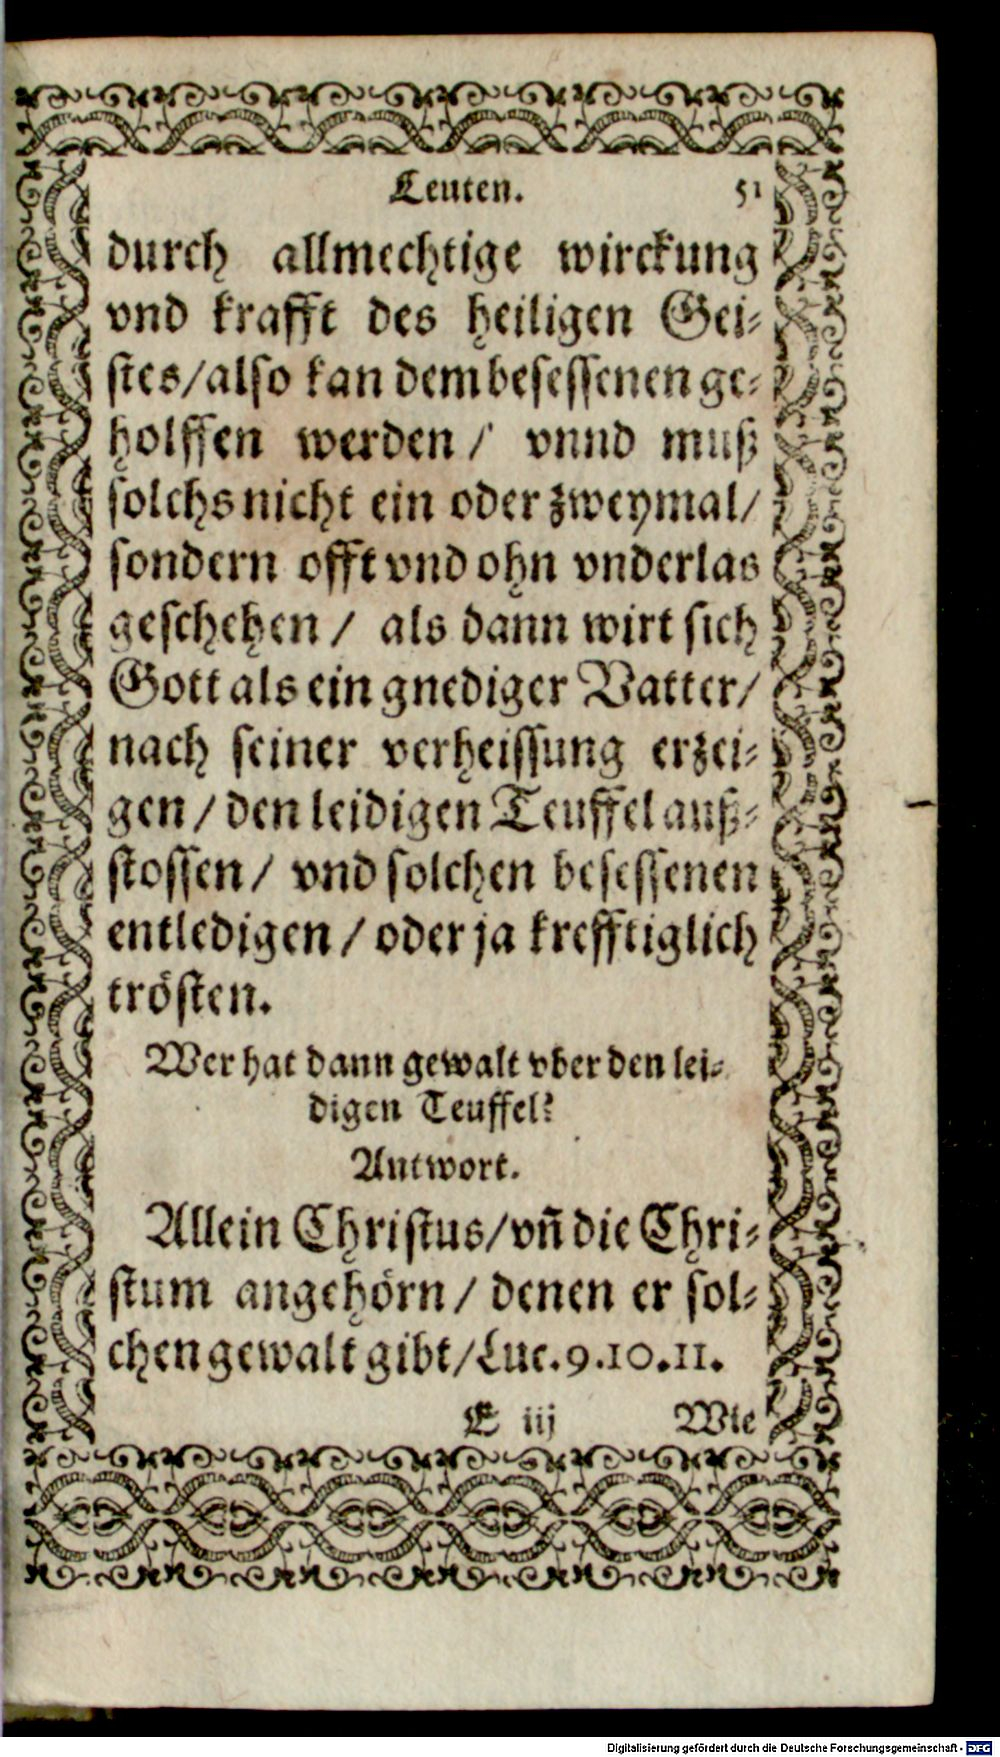 Leuten. 51
durch allmechtige wirckung
vnd krafft des heiligen Gei⸗
stes/also kan dem besessenen ge⸗
holffen werden/ vnnd muß
solchs nicht ein oder zweymal/
sondern offt vnd ohn vnderlas
geschehen/ als dann wirt sich
Gott als ein gnediger Vatter/
nach seiner verheissung erzei⸗
gen/den leidigen Teuffel auß⸗
stossen/ vnd solchen besessenen
entledigen/oder ja krefftiglich
trösten.
Wer hat dann gewalt vber den lei⸗
digen Teuffel?
Antwort.
Allein Christus/vñ die Chri⸗
stum angehörn/denen er sol⸗
chen gewalt gibt/Luc.9.10.11.
E iij Wie
Digitalisierung gefördert durch die Deutsche Forschungsgemeinschaft - DFG